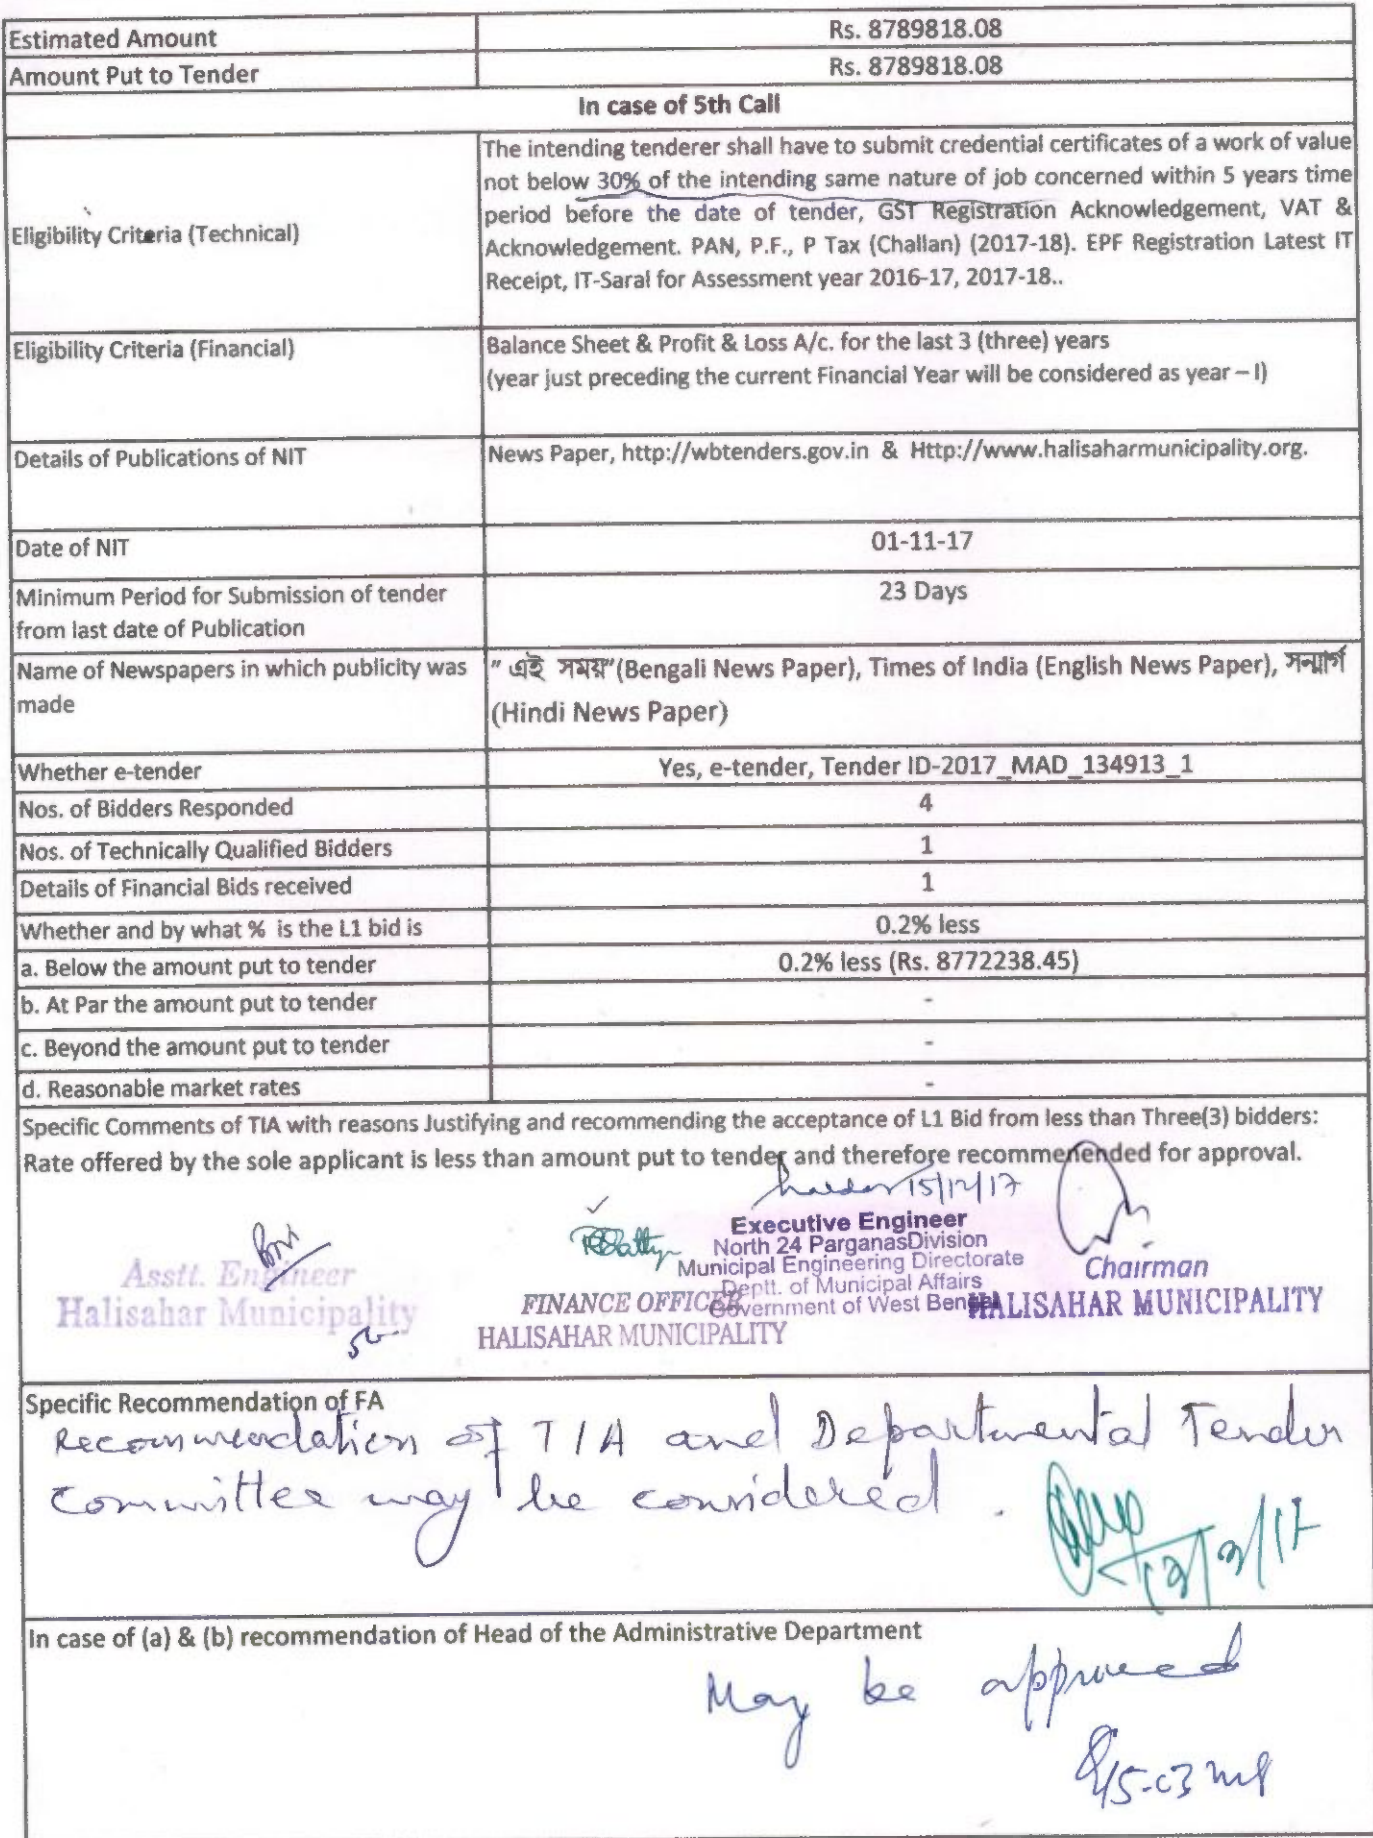 Estimated Amount Rs. 8789818.08
Amount Put to Tender Rs. 8789818.08
In case of 5th Call
Eligibility Criteria (Technical)
The intending tenderer shall have to submit credential certificates of a work of value
not below 30% of the intending same nature of job concerned within 5 years time
period before the date of tender, GST Registration Acknowledgement, VAT &
Acknowledgement. PAN, P.F., P Tax (Challan) (2017-18). EPF Registration Latest IT
Receipt, IT-Saral for Assessment year 2016-17, 2017-18..
Eligibility Criteria (Financial)
Balance Sheet & Profit & Loss A/c. for the last 3 (three) years
(year just preceding the current Financial Year will be considered as year – I)
Details of Publications of NIT
News Paper, http://wbtenders.gov.in & Http://www.halisaharmunicipality.org.
Date of NIT 01-11-17
Minimum Period for Submission of tender
from last date of Publication
23 Days
Name of Newspapers in which publicity was
made
" এই সময়"(Bengali News Paper), Times of India (English News Paper), সন্মার্গ
(Hindi News Paper)
Whether e-tender Yes, e-tender, Tender ID-2017_MAD_134913_1
Nos. of Bidders Responded 4
Nos. of Technically Qualified Bidders 1
Details of Financial Bids received 1
Whether and by what % is the L1 bid is 0.2% less
a. Below the amount put to tender 0.2% less (Rs. 8772238.45)
b. At Par the amount put to tender -
c. Beyond the amount put to tender -
d. Reasonable market rates -
Specific Comments of TIA with reasons Justifying and recommending the acceptance of L1 Bid from less than Three(3) bidders:
Rate offered by the sole applicant is less than amount put to tender and therefore recommenended for approval.
15/12/17
Asstt. Engineer
Halisahar Municipality
FINANCE OFFICER
HALISAHAR MUNICIPALITY
Executive Engineer
North 24 ParganasDivision
Municipal Engineering Directorate
Deptt. of Municipal Affairs
Government of West Bengal
Chairman
HALISAHAR MUNICIPALITY
Specific Recommendation of FA
Recommendation of TIA and Departmental Tender
Committee may be considered.
In case of (a) & (b) recommendation of Head of the Administrative Department
May be approved